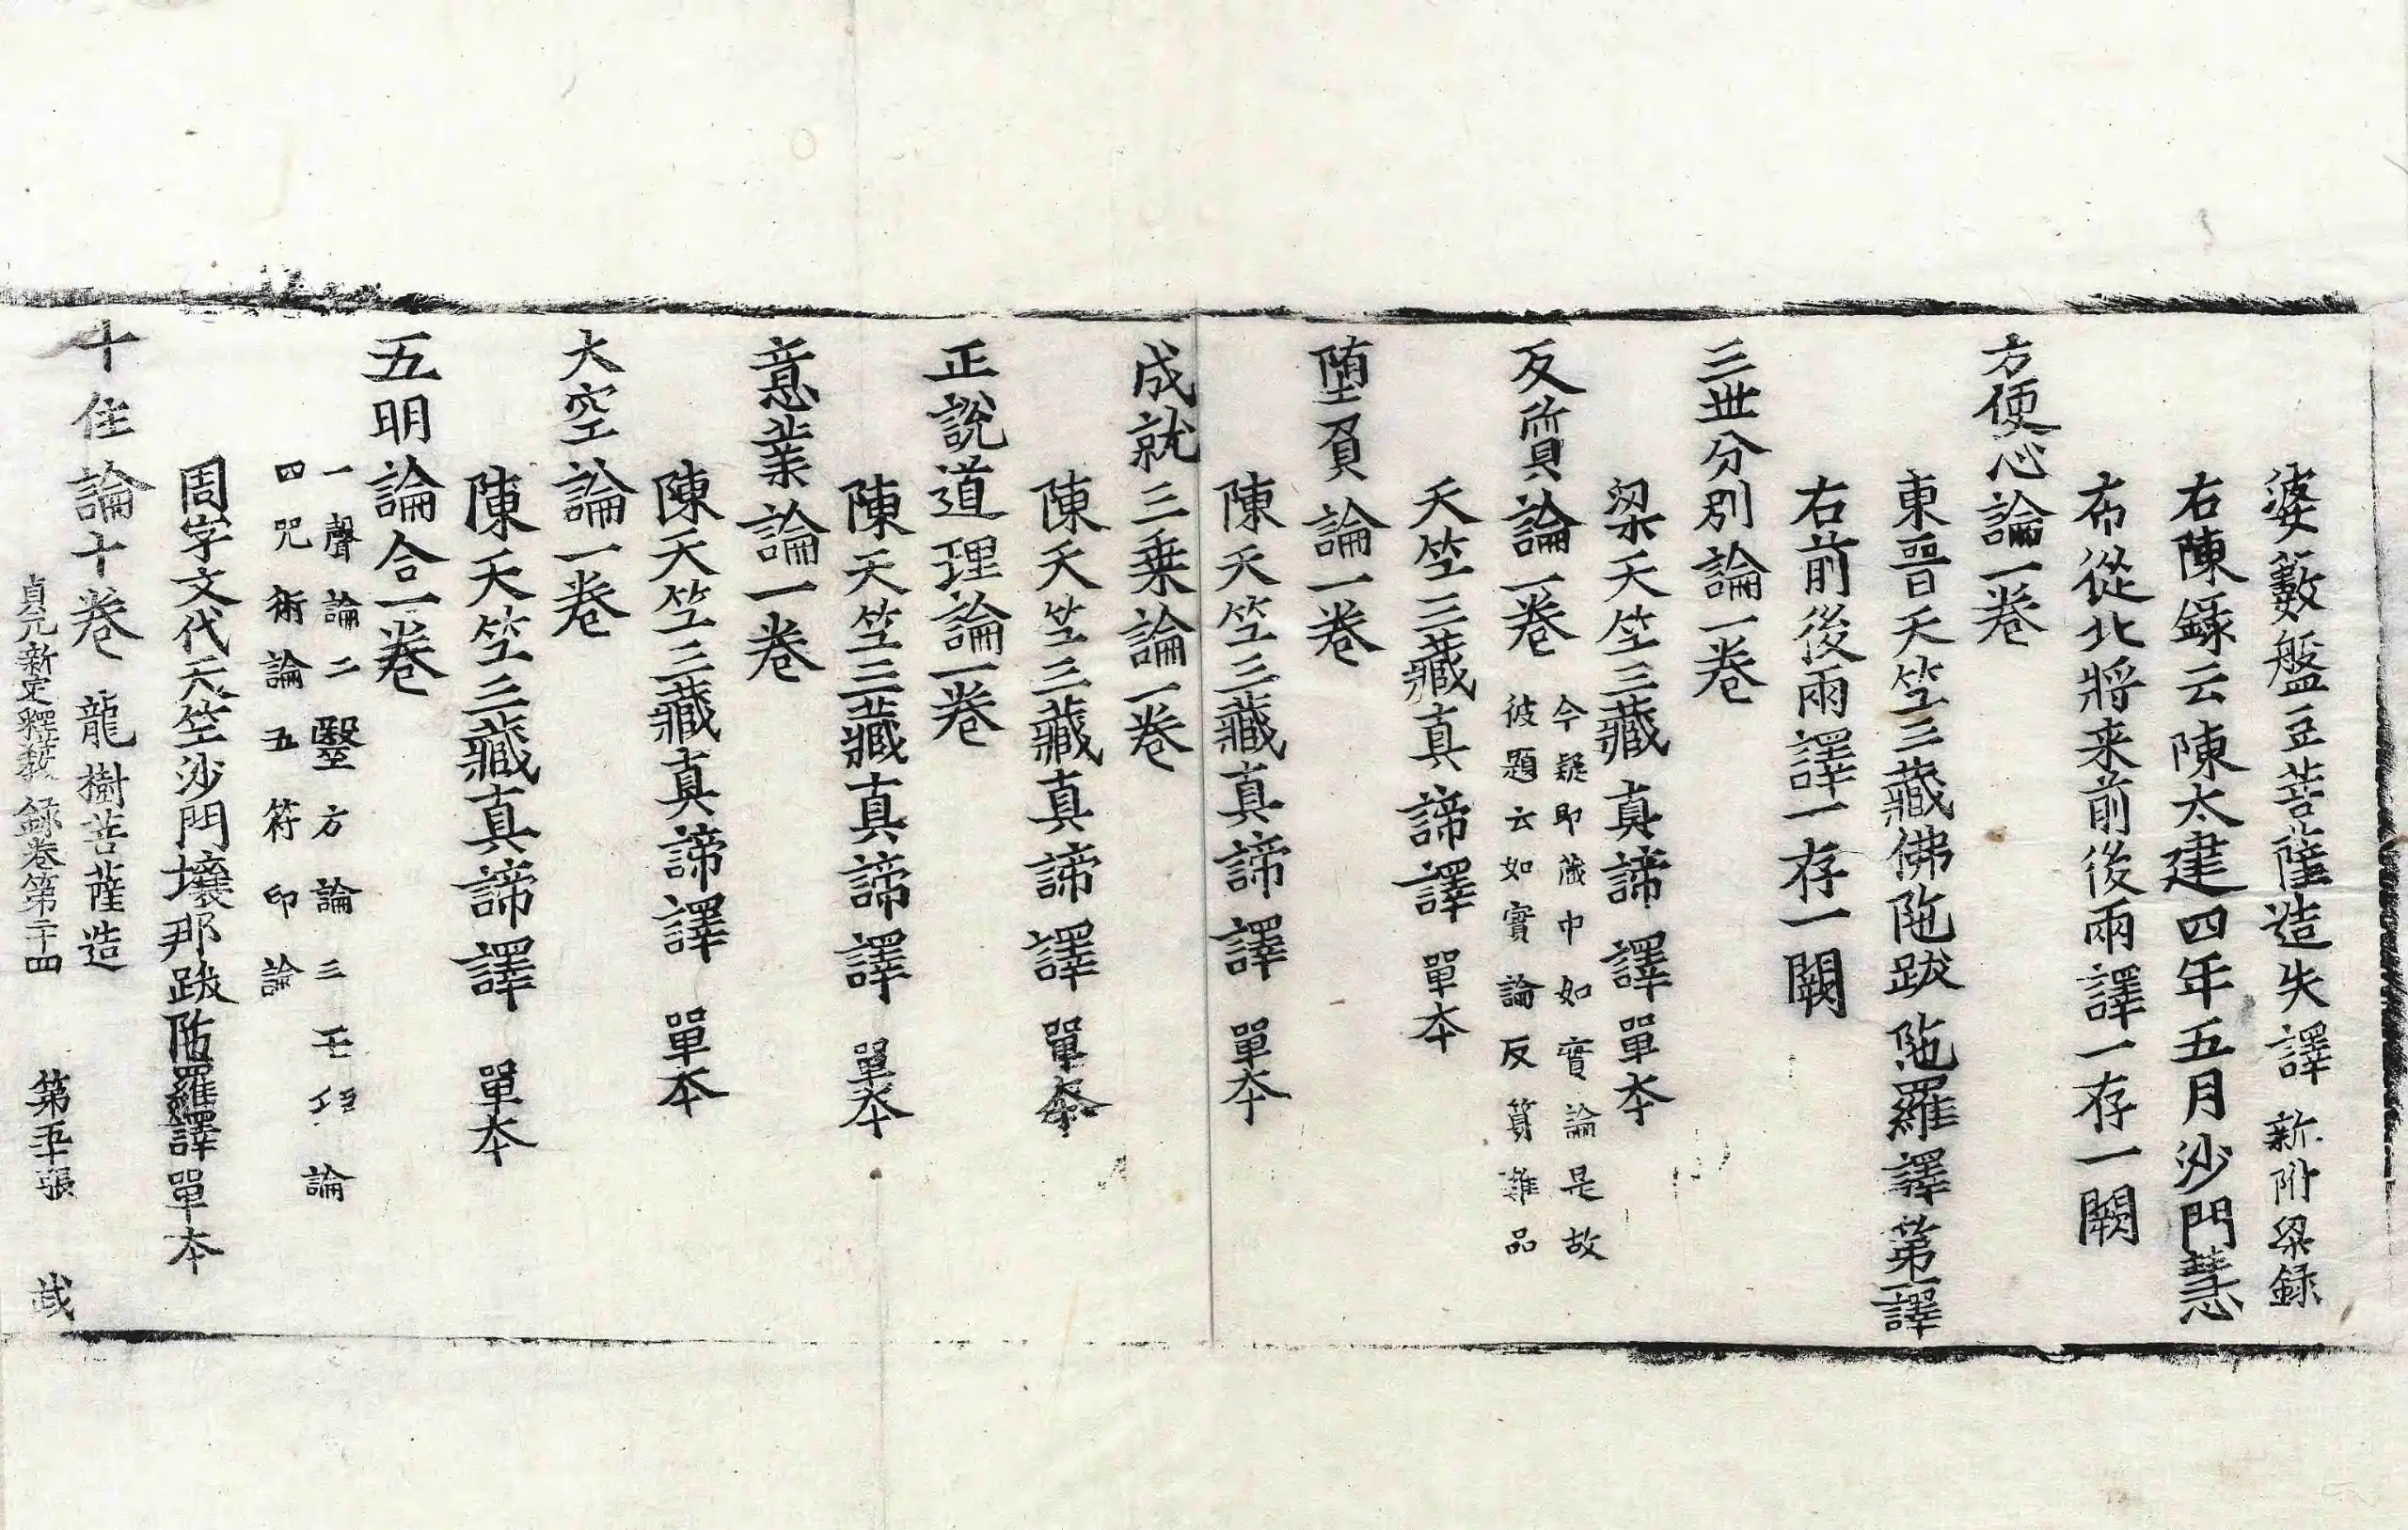 婆藪盤豆菩薩造失譯 新附梁録
右陳録云陳太建四年五月沙門慧
布從北將来前後兩譯一存一闕
方便心論一卷
東晉天竺三藏佛陁跋陁羅譯第一譯
右前後兩譯一存一闕
三世分別論一卷
梁天竺三藏真諦譯 單夲
反質論一卷 今疑即藏中如實論是故
彼題云如實論反質難品
天竺三藏真諦譯 單夲
堕負論一卷
陳天竺三藏真諦譯 單夲
成就三乗論一卷
陳天竺三藏真諦譯 單夲
正說道理論一卷
陳天竺三藏真諦譯 單夲
意業論一卷
陳天竺三藏真諦譯 單夲
大空論一卷
陳天竺三藏真諦譯 單夲
五明論合一卷
一聲論二醫方論三工巧論
四咒術論五符印論
周宇文代天竺沙門攘那跋陁羅譯 單夲
十住論十卷 龍樹菩薩造
貞元新定釋教録卷第二十四 第五十張